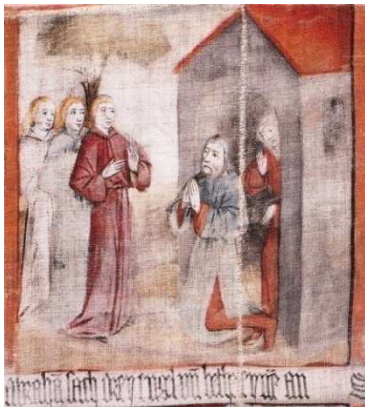 abrahā sach drey engel vn̄ bethet eynē an